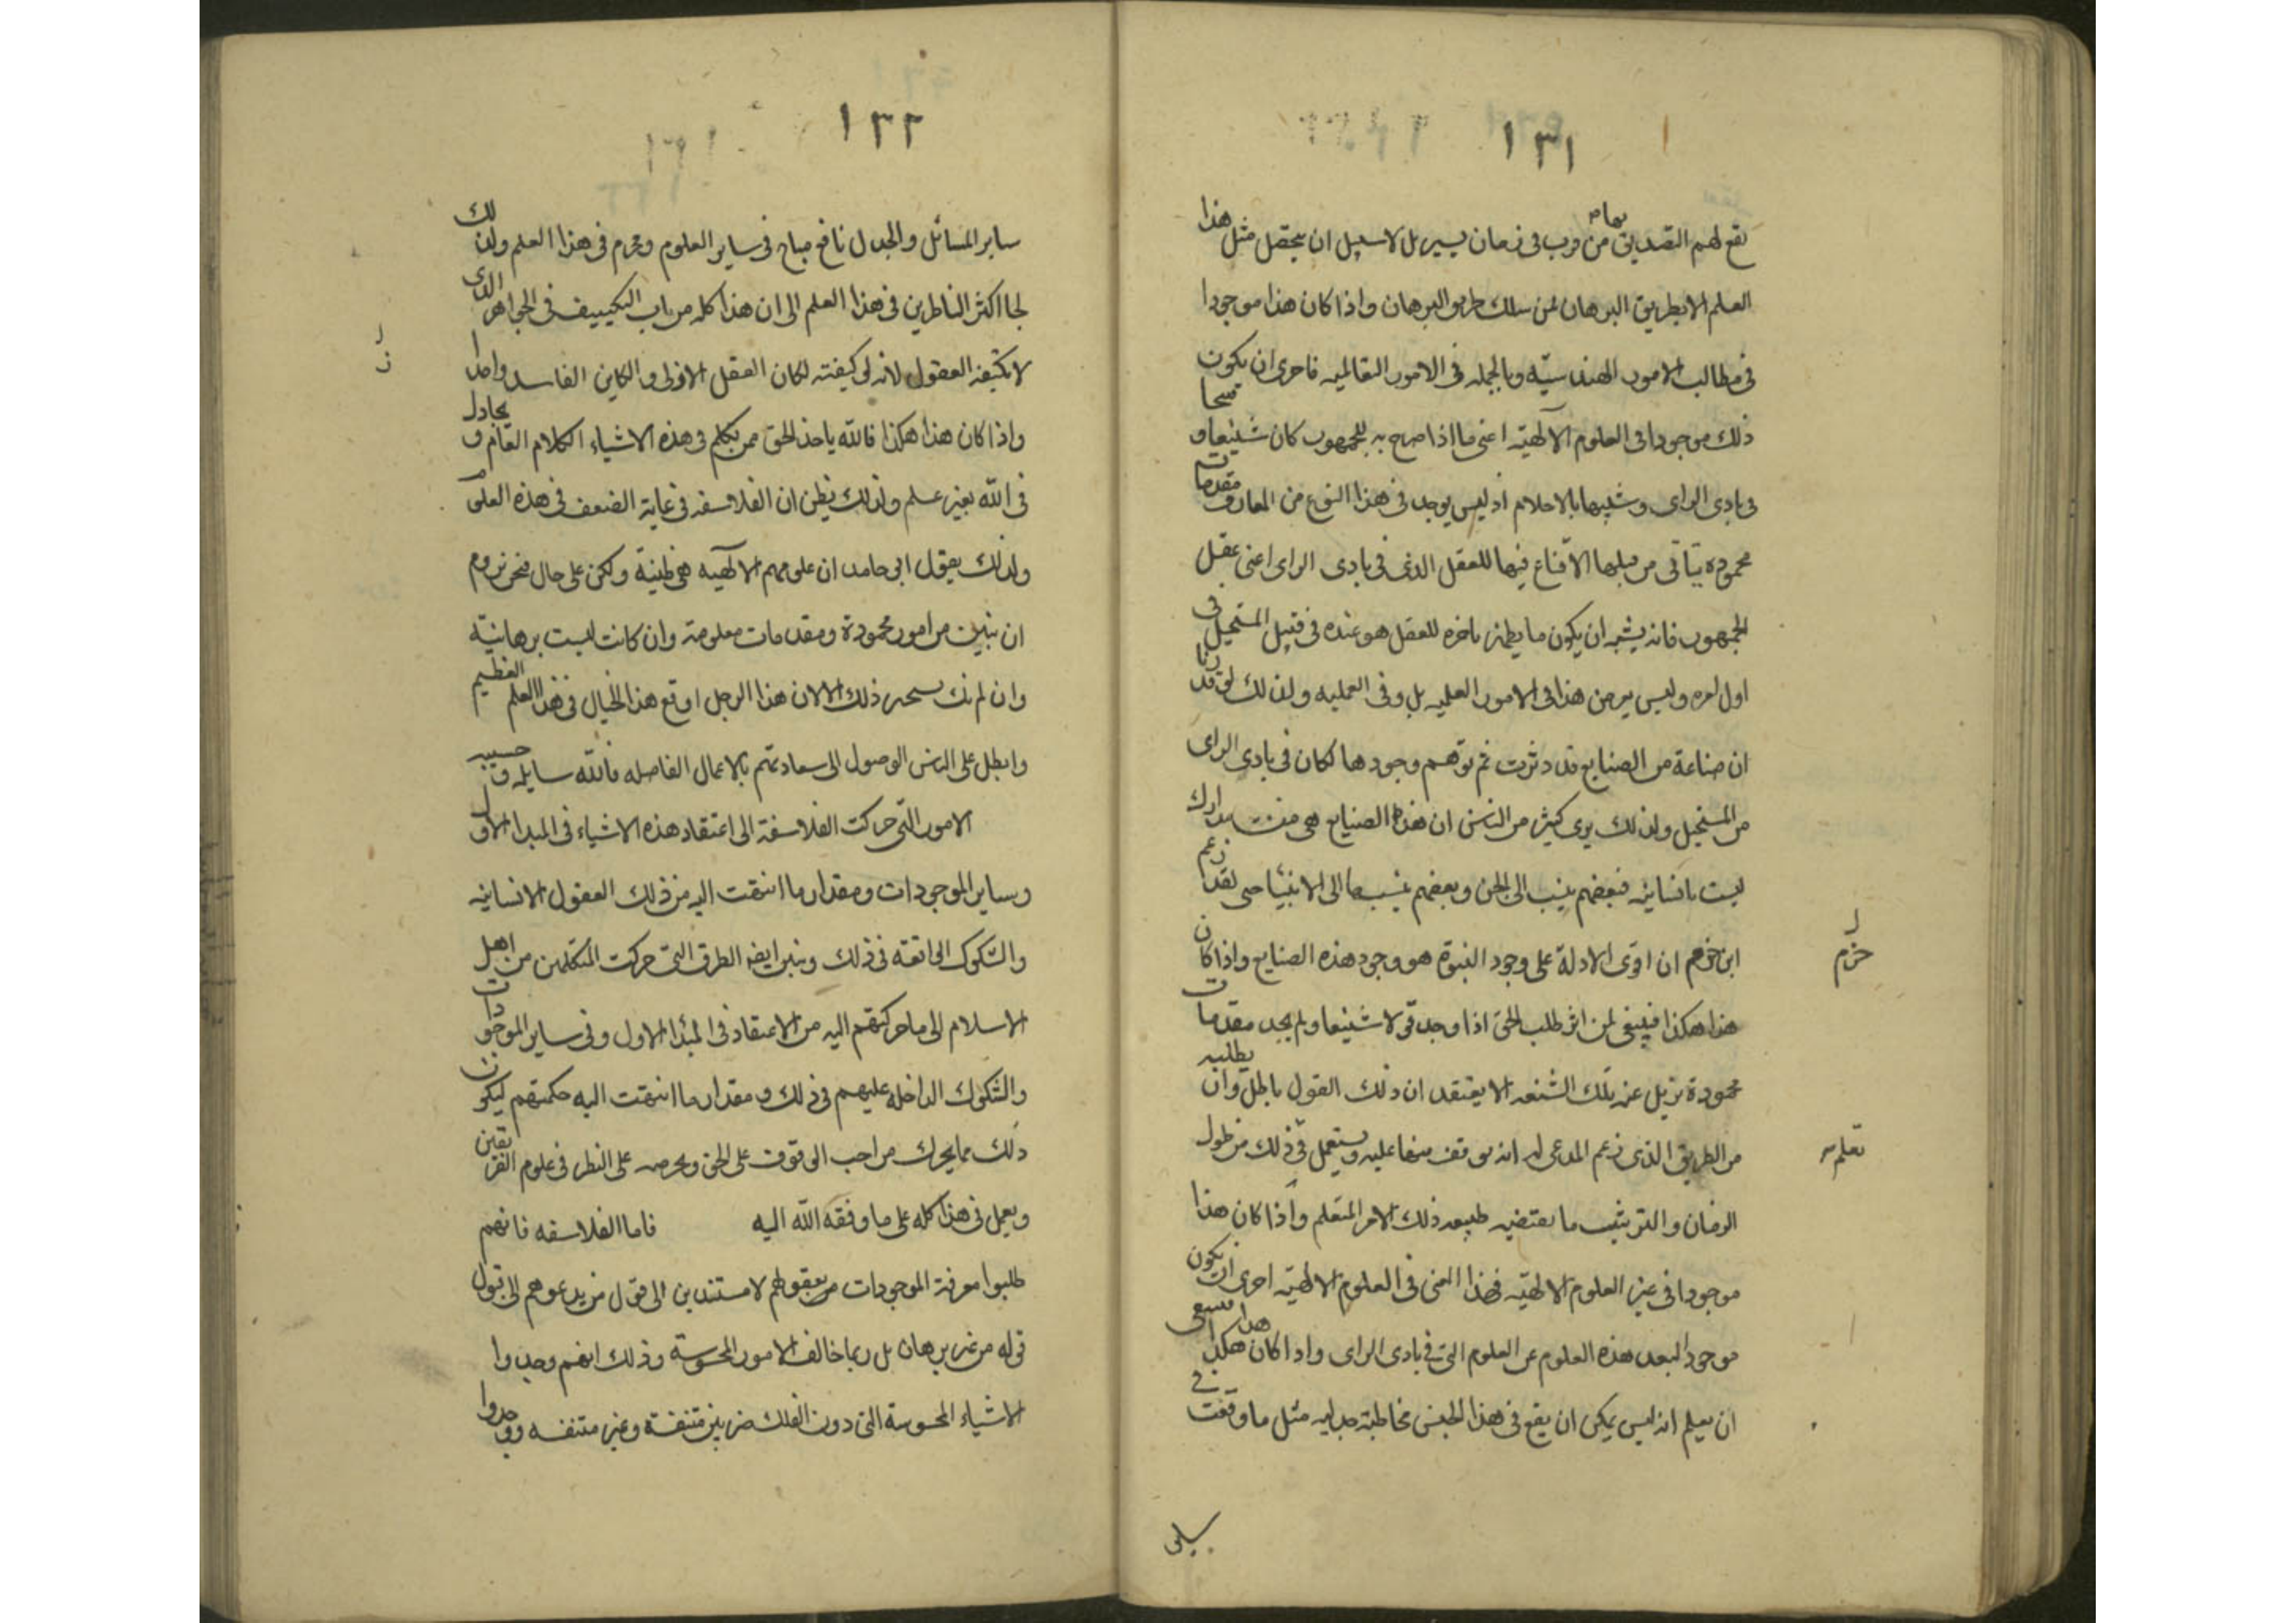 ١٣١
يقع لهم التصديق بها من قرب فى زمان يسير بل لا سبيل ان يحصل مثل هذا
العلم الا بطريق البرهان لمن سلك طريق البرهان واذا كان هذا موجودا
فى مطالب الامور الهندسيّه وبالجمله فى الامور التعاليميه فاحرى ان يكون
ذلك موجودا فى العلوم الآلهيّه اعنى ما اذا صرح به للجمهور كان شنيعا وقبيحا
فى بادى الراى وشبيها بالاحلام اذ ليس يوجد فى هذا النوع من المعارف مقدمات
محموده يتاتى من قبلها الاقناع فيها للعقل الذى فى بادى الراى اعنى عقل
الجمهور فانه يشبه ان يكون ما يظهر باخره للعقل هو عنده فى قبيل المستحيل فى
اول امره وليس يعرض هذا فى الامور العلميه بل وفى العمليه ولذلك لو قدرنا
ان صناعة من الصنايع قد دثرت ثم توهم وجودها لكان فى بادى الراى
من المستحيل ولذلك يرى كثير من الناس ان هذه الصنايع هى من مدارك
ليست بانسانيه فبعضهم ينسب الى الجن وبعضهم ينسبها الى الانبياء حتى لقد زعم
ابن حزم ان اقوى الادلة على وجود النبوة هو وجود هذه الصنايع واذا كان
حزم
هذا هكذا فينبغى لمن اثر طلب الحق اذا وجد قولا شنيعا ولم يجد مقدمات
محمودة تزيل عنه تلك الشنعه الا يعتقد ان ذلك القول باطل وان يطلبه
من الطريق الذى زعم المدعى له انه يوقف منها عليه ويستعمل فى ذلك من طول
تعلم
الزمان والترتيب ما يقتضيه طبيعه ذلك الامر المتعلم واذا كان هذا
موجودا فى غير العلوم الالهيّه فهذا المعنى فى العلوم الالهيّه احرى ان يكون
موجودا لبعد هذه العلوم عن العلوم التى فى بادى الراى واذا كان هذا هكذا فينبغى
ان يعلم انه ليس يمكن ان يقع فى هذا الجنس مخاطبة جدليه مثل ما وقعت فى
١٣٢
ساير المسائل والجدل نافع مباح فى ساير العلوم ومحرم فى هذا العلم ولذلك
لجا اكثر الناظرين فى هذا العلم الى ان هذا كله من باب التكييف فى الجواهر الذى
لا تكيفه العقول لانه لو كيفته لكان العقل الازلى والكاين الفاسد واحدا
واذا كان هذا هكذا فالله ياخذ الحق ممن تكلم فى هذه الاشياء الكلام العام ويجادل
فى الله بغير علم ولذلك يظن ان الفلاسفه فى غاية الضعف فى هذه العلوم
ولذلك يقول ابى حامد ان علومهم الآلهيه هى ظنية ولكن على حال فنحن نروم
ان نبين من امور محمودة ومقدمات معلومة وان كانت ليست برهانيّه
وان لم نك نستجيز ذلك الا لان هذا الرجل اوقع هذا الخيال فى هذا العلم العظيم
وابطل على الناس الوصول الى سعادتهم بالاعمال الفاضله فالله سايله وحسيبه
الامور التّى حركت الفلاسفة الى اعتقاد هذه الاشياء فى المبدا الاول
وساير الموجودات ومقدار ما انتهت اليه من ذلك العقول الانسانيه
والشكوك الواقعه فى ذلك ونبين ايضا الطرق التى حركت المتكلمين من اهل
الاسلام الى ما حركتهم اليه من الاعتقاد فى المبدا الاول وفى ساير الموجودات
والشكوك الداخله عليهم فى ذلك ومقدار ما انتهت اليه حكمتهم ليكون
ذلك مما يحرك من احب الوقوف على الحق ويحرصه على النظر فى علوم الفريقين
ويعمل فى هذا كله على ما وفقه الله اليه فاما الفلاسفه فانهم
طلبوا معرفة الموجودات من بعقولهم لا مستندين الى قول من يدعوهم الى قبول
قوله من غير برهان بل ربما خالف الامور المحسوسة وذلك انهم وجدوا
الاشياء المحسوسة التى دون الفلك ضربين متنفسة وغير متنفسه ووجدوا